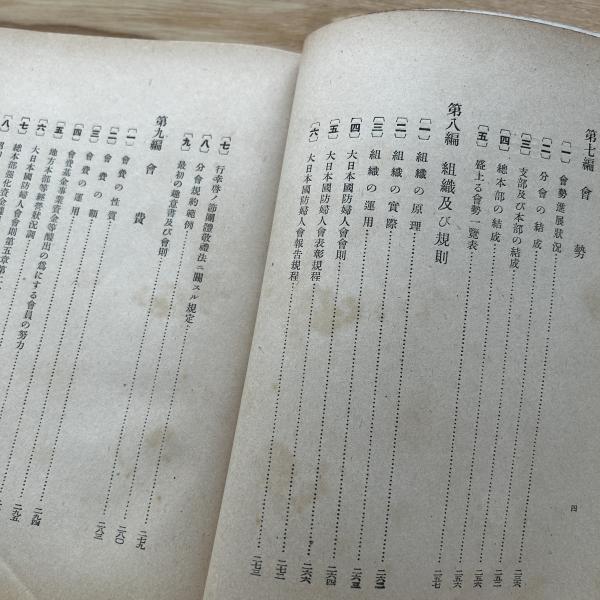 第七編 會勢
〔一〕 會勢進展狀況……二三六
〔二〕 分會の結成……二五二
〔三〕 支部及び本部の結成……
〔四〕 總本部の結成……二五六
〔五〕 盛上る會勢一覽表……二五七
第八編 組織及び規則
〔一〕 組織の原理……
〔二〕 組織の實際……二六三
〔三〕 組織の運用……二六五
〔四〕 大日本國防婦人會會則……二六四
〔五〕 大日本國防婦人會表彰規程……二六六
〔六〕 大日本國防婦人會報告規程……二七二
四
〔七〕 行幸啓ノ節團體敬禮法ニ關スル規定……
〔八〕 分會規約範例……
〔九〕 最初の趣意書及び會則……
第九編 會費
〔一〕 會費の性質……二七九
〔二〕 會費の額……二八〇
〔三〕 會費の運用……二八三
〔四〕 會費基金事業資金等醵出の爲にする會員の努力
〔五〕 地方本部等經營狀況調……
〔六〕 大日本國防婦人會會則第五章第
〔七〕 總本部强化資金
〔八〕
二九四
二九五